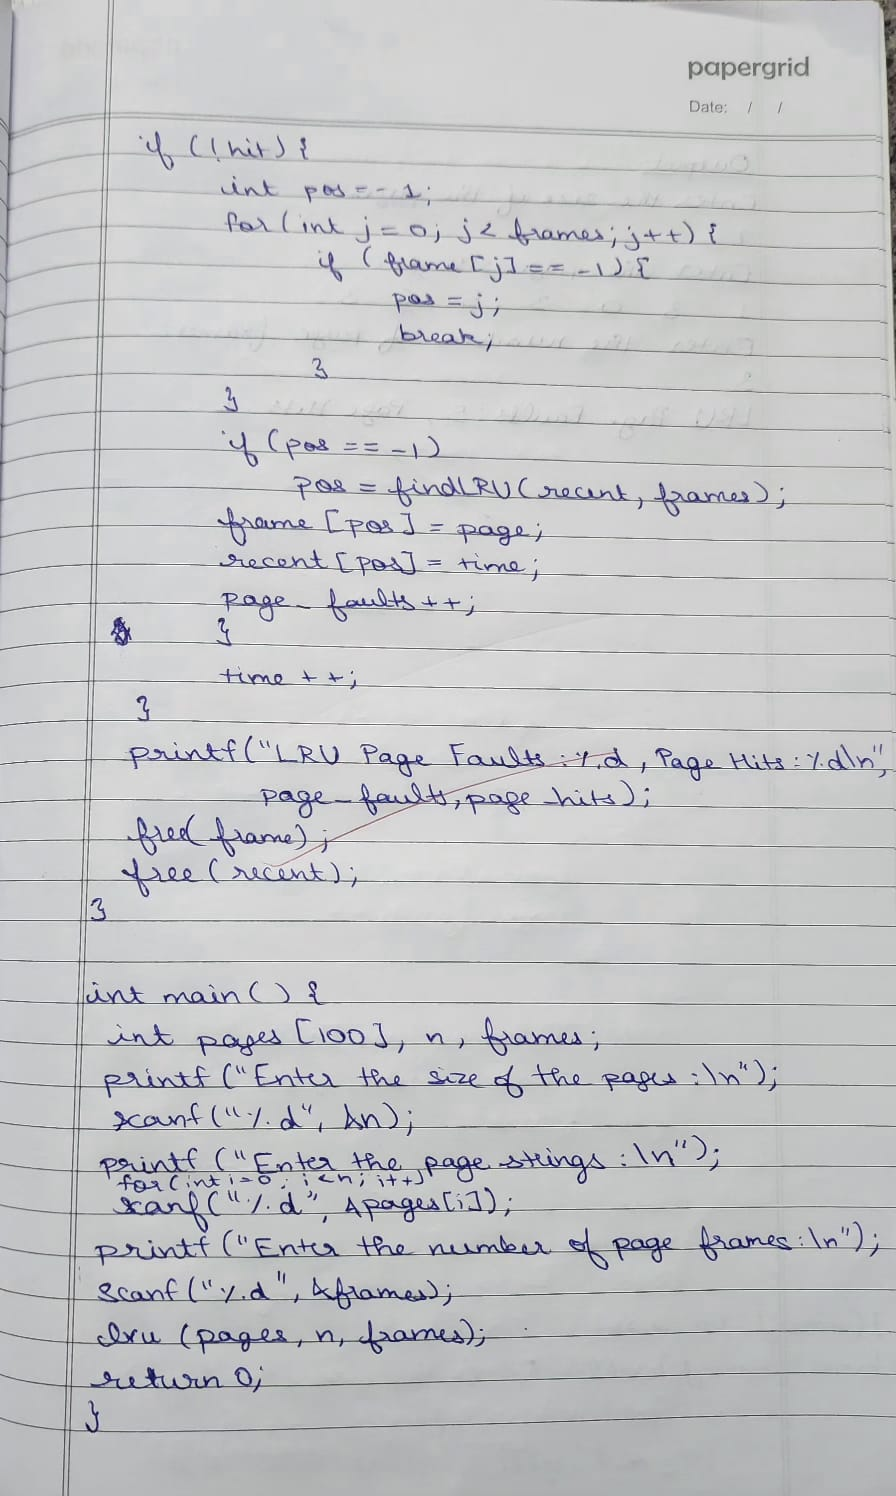 papergrid
Date: / /
if (!hit) {
int pos = -1;
for (int j = 0; j < frames; j++) {
if (frame [j] == -1) {
pos = j;
break;
}
}
if (pos == -1)
pos = findLRU (recent, frames);
frame [pos] = page;
recent [pos] = time;
page_faults ++;
}
time ++;
}
printf("LRU Page Faults : %d, Page Hits : %d\n",
page_faults, page_hits);
free( frame);
free (recent);
}
int main () {
int pages [100], n, frames;
printf ("Enter the size of the pages :\n");
scanf ("%d", &n);
printf ("Enter the page strings :\n");
for (int i=0; i<n; i++)
scanf("%d", &pages[i]);
printf ("Enter the number of page frames:\n");
scanf ("%d", &frames);
lru (pages, n, frames);
return 0;
}